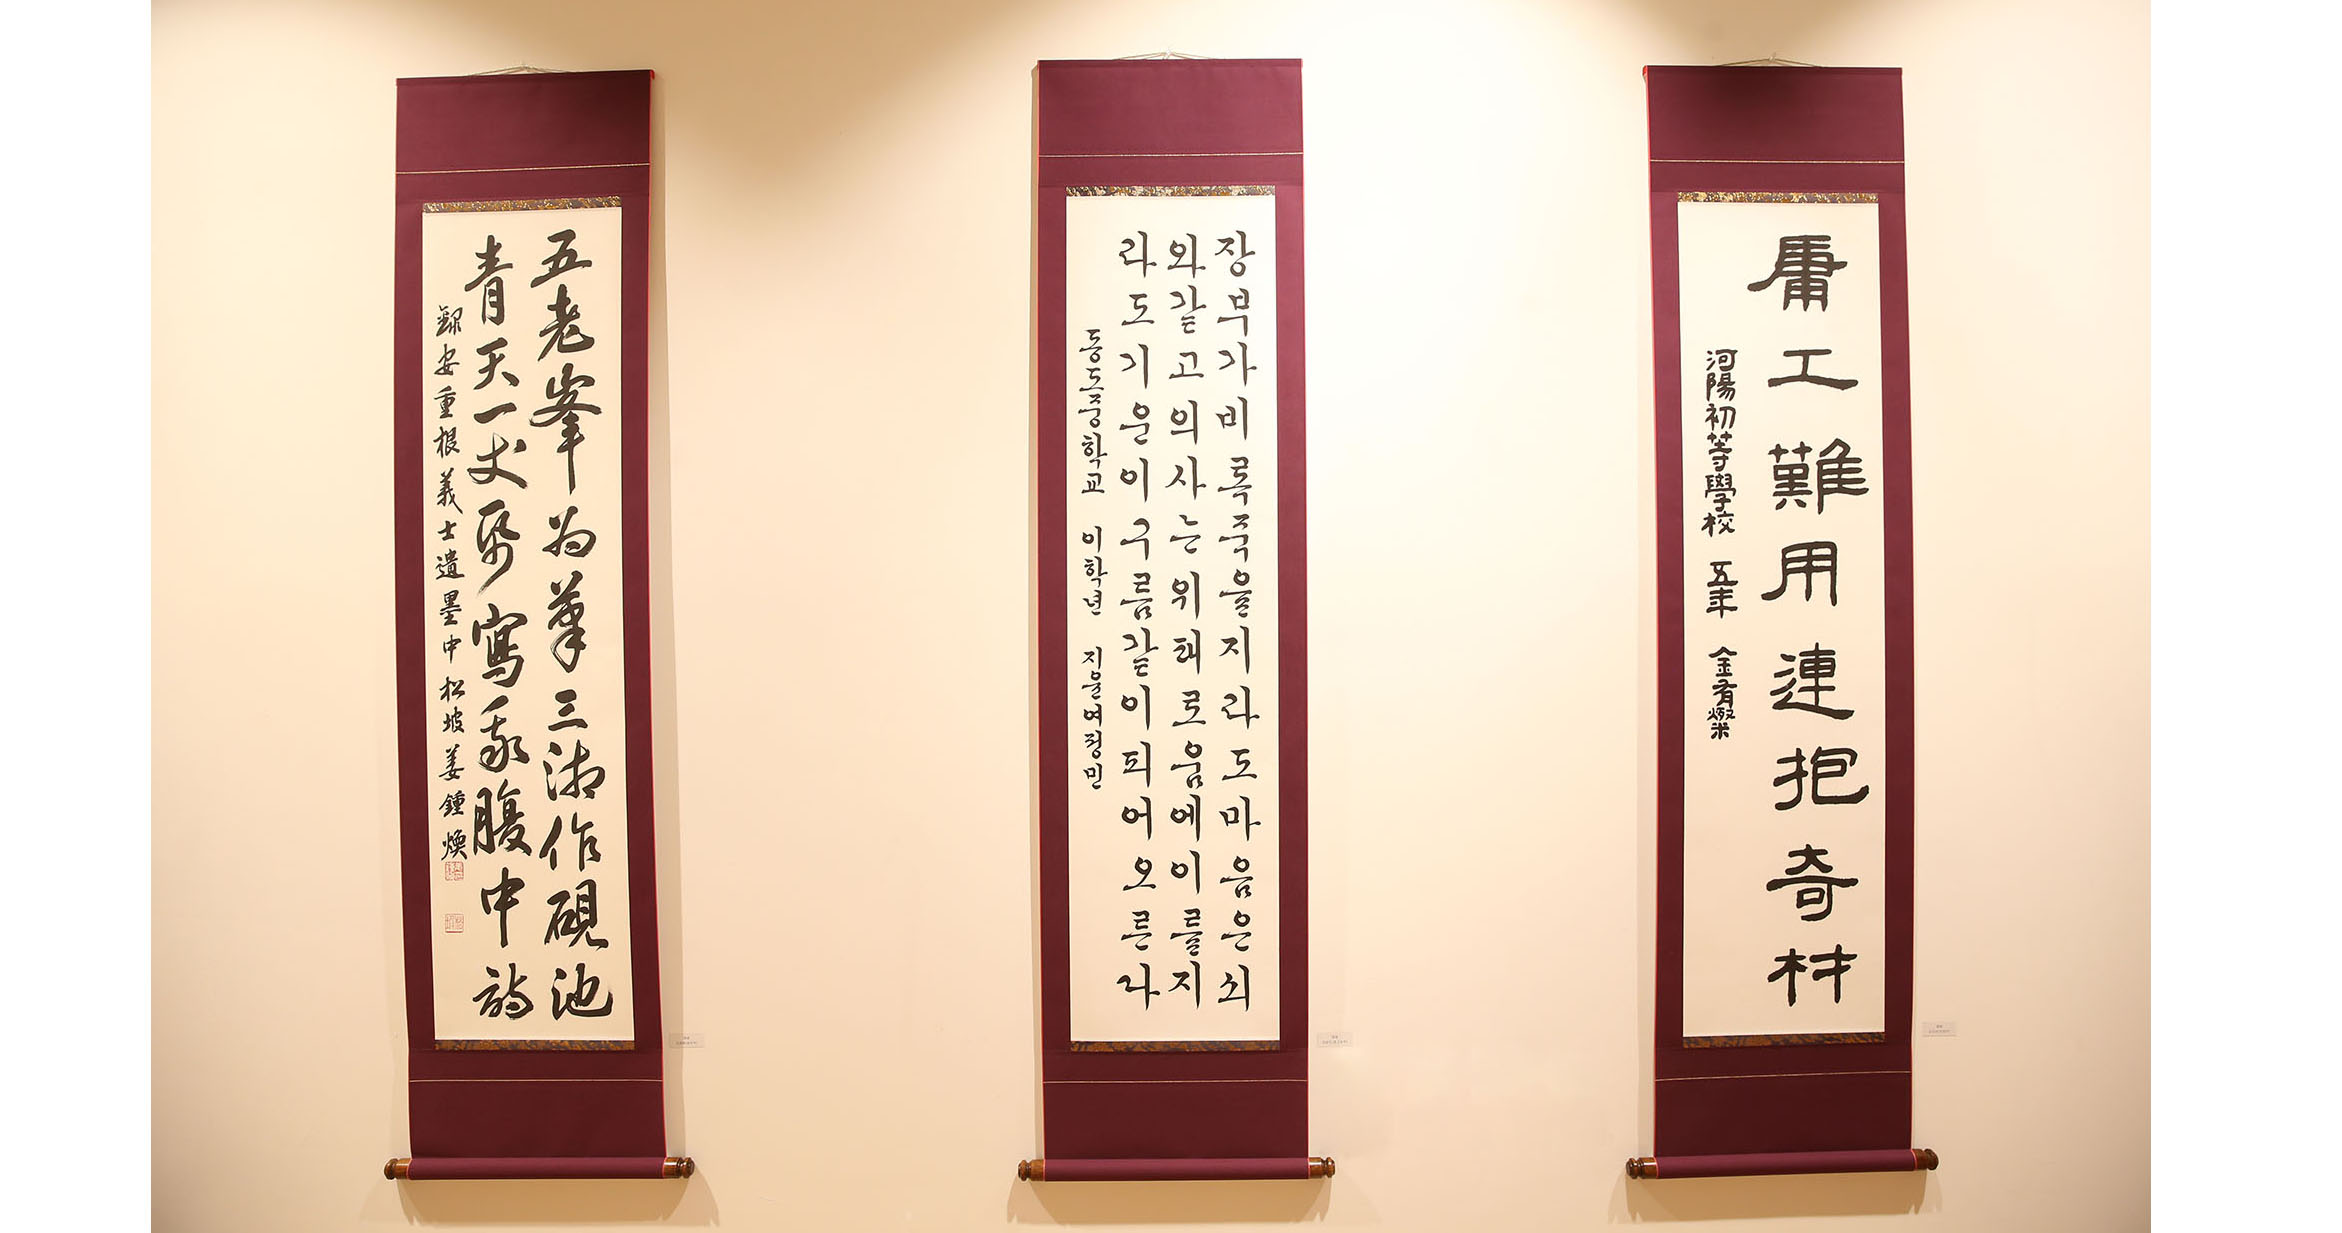 五老峯為筆三湘作硯池
青天一丈帋寫我腹中詩
錄安重根義士遺墨中松坡姜鍾煥
장부가비록죽을지라도마음은쇠
와같고의사는위태로움에이를지
라도기운이구름같이피어오른다
동도중학교 이학년 지윤여정민
庸工難用連抱奇材
河陽初等學校 五年 金有燦